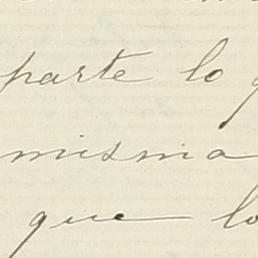 parte lo
misma
que lo